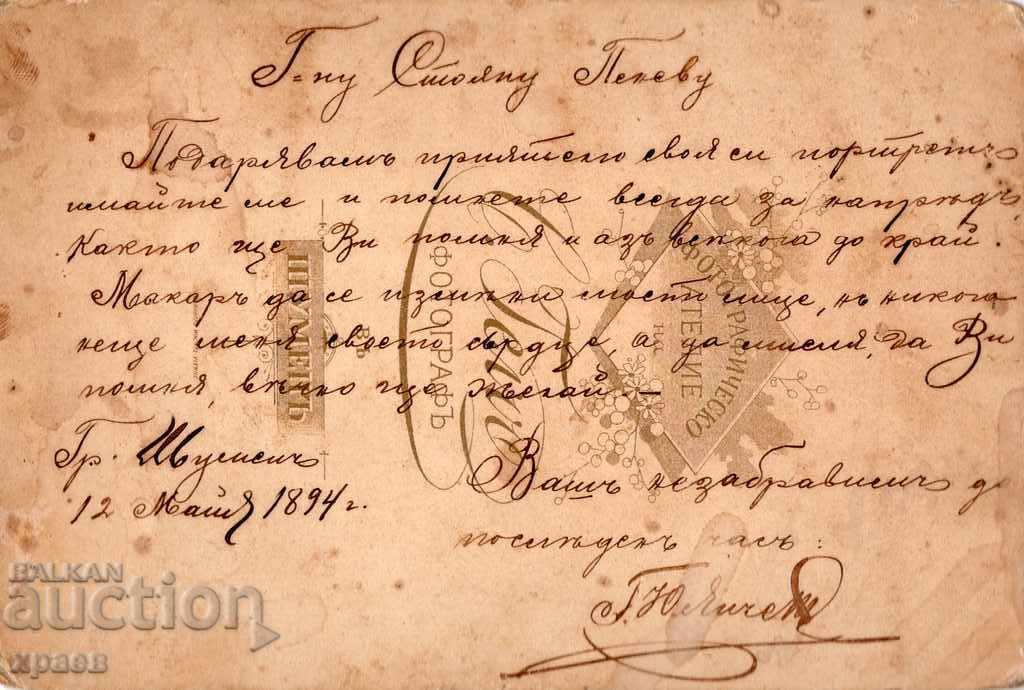 Г=ну Стояну Пеневу
Подарявамъ приятелю своя си портретъ
имайте ме и помнете всегда за напрѣдъ,
Както ще Ви помня и азъ всѣкога до край.
Макаръ да се измѣни моето лице, нъ никога
неще меня своето сърдце, а да мисля, да Ви
помня, вѣчно ще желай.—
Гр. Шуменъ
12 Майя 1894 г.
Вашъ незабравимъ до
послѣденъ часъ:
Г. Ю.
ФОТОГРАФИЧЕСКО
АТЕЛИЕ
на
ФОТОГРАФЪ
въ
ШУМЕНЪ
BALKAN
auction
храев